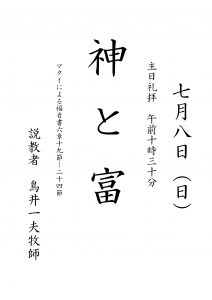 七月八日（日）
主日礼拝　午前十時三十分
神と富
マタイによる福音書六章十九節－二十四節
説教者　鳥井一夫牧師